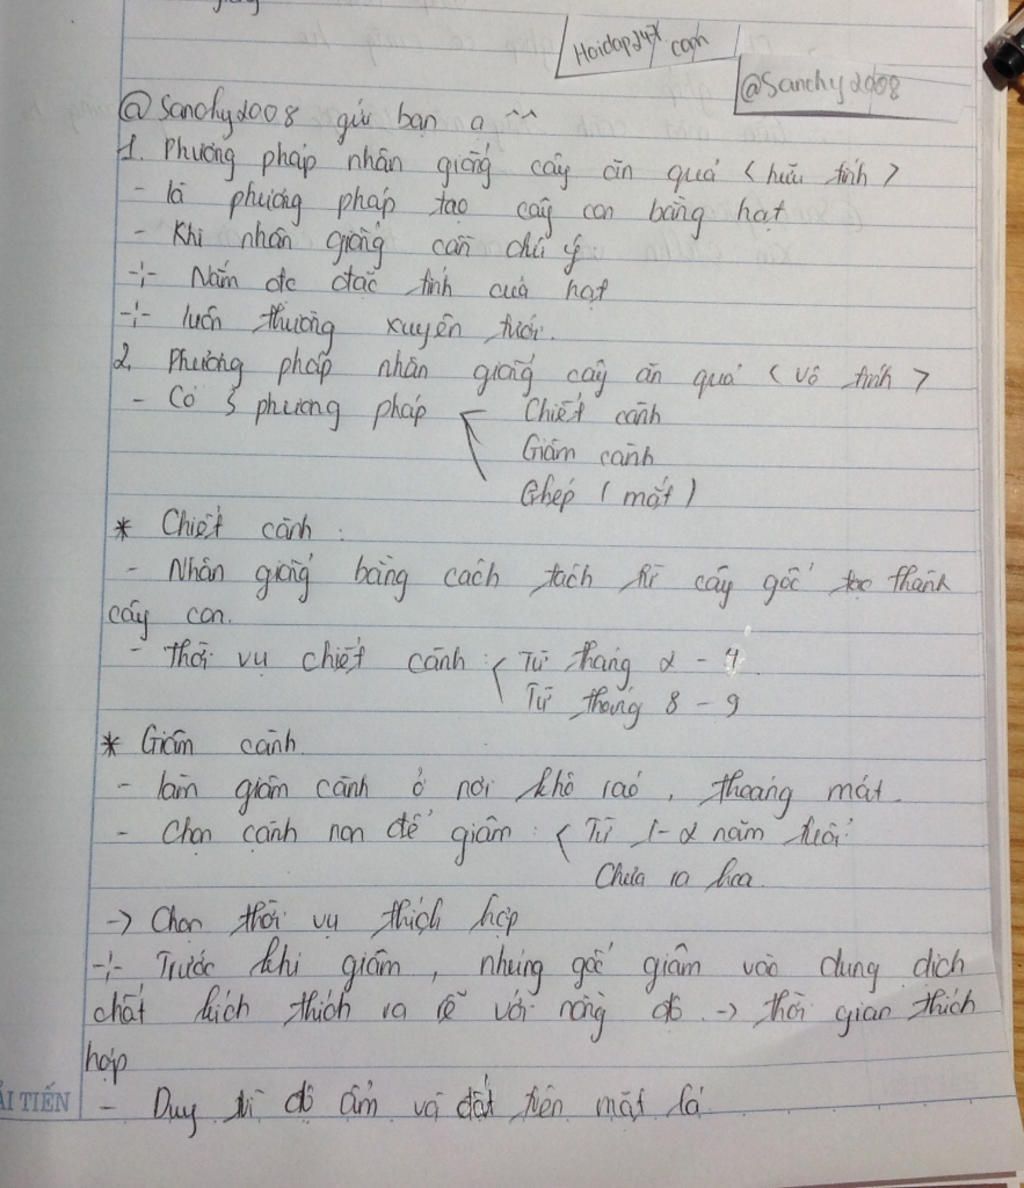 Hoidap247.com
@Sanchy2008
@Sanchy2008 gửi bạn ạ ^^
1. Phương pháp nhân giống cây ăn quả < hữu tính >
- là phương pháp tạo cây con bằng hạt
- Khi nhân giống cần chú ý
-:- Nắm đc đặc tính của hạt
-:- luôn thường xuyên tưới.
2. Phương pháp nhân giống cây ăn quả < vô tính >
- Có 3 phương pháp Chiết cành
Giâm cành
Ghép ( mắt )
* Chiết cành :
- Nhân giống bằng cách tách từ cây gốc tạo thành
cây con.
- Thời vụ chiết cành : Từ tháng 2 - 4.
Từ tháng 8 - 9
* Giâm cành
- làm giâm cành ở nơi khô ráo, thoáng mát.
- Chọn cành non để giâm : Từ 1-2 năm tuổi
Chưa ra hoa.
-> Chọn thời vụ thích hợp
-:- Trước khi giâm, nhúng gốc giâm vào dung dịch
chất kích thích ra rễ với nồng độ -> thời gian thích
hợp
ẢI TIẾN
- Duy trì độ ẩm và đất trên mặt lá